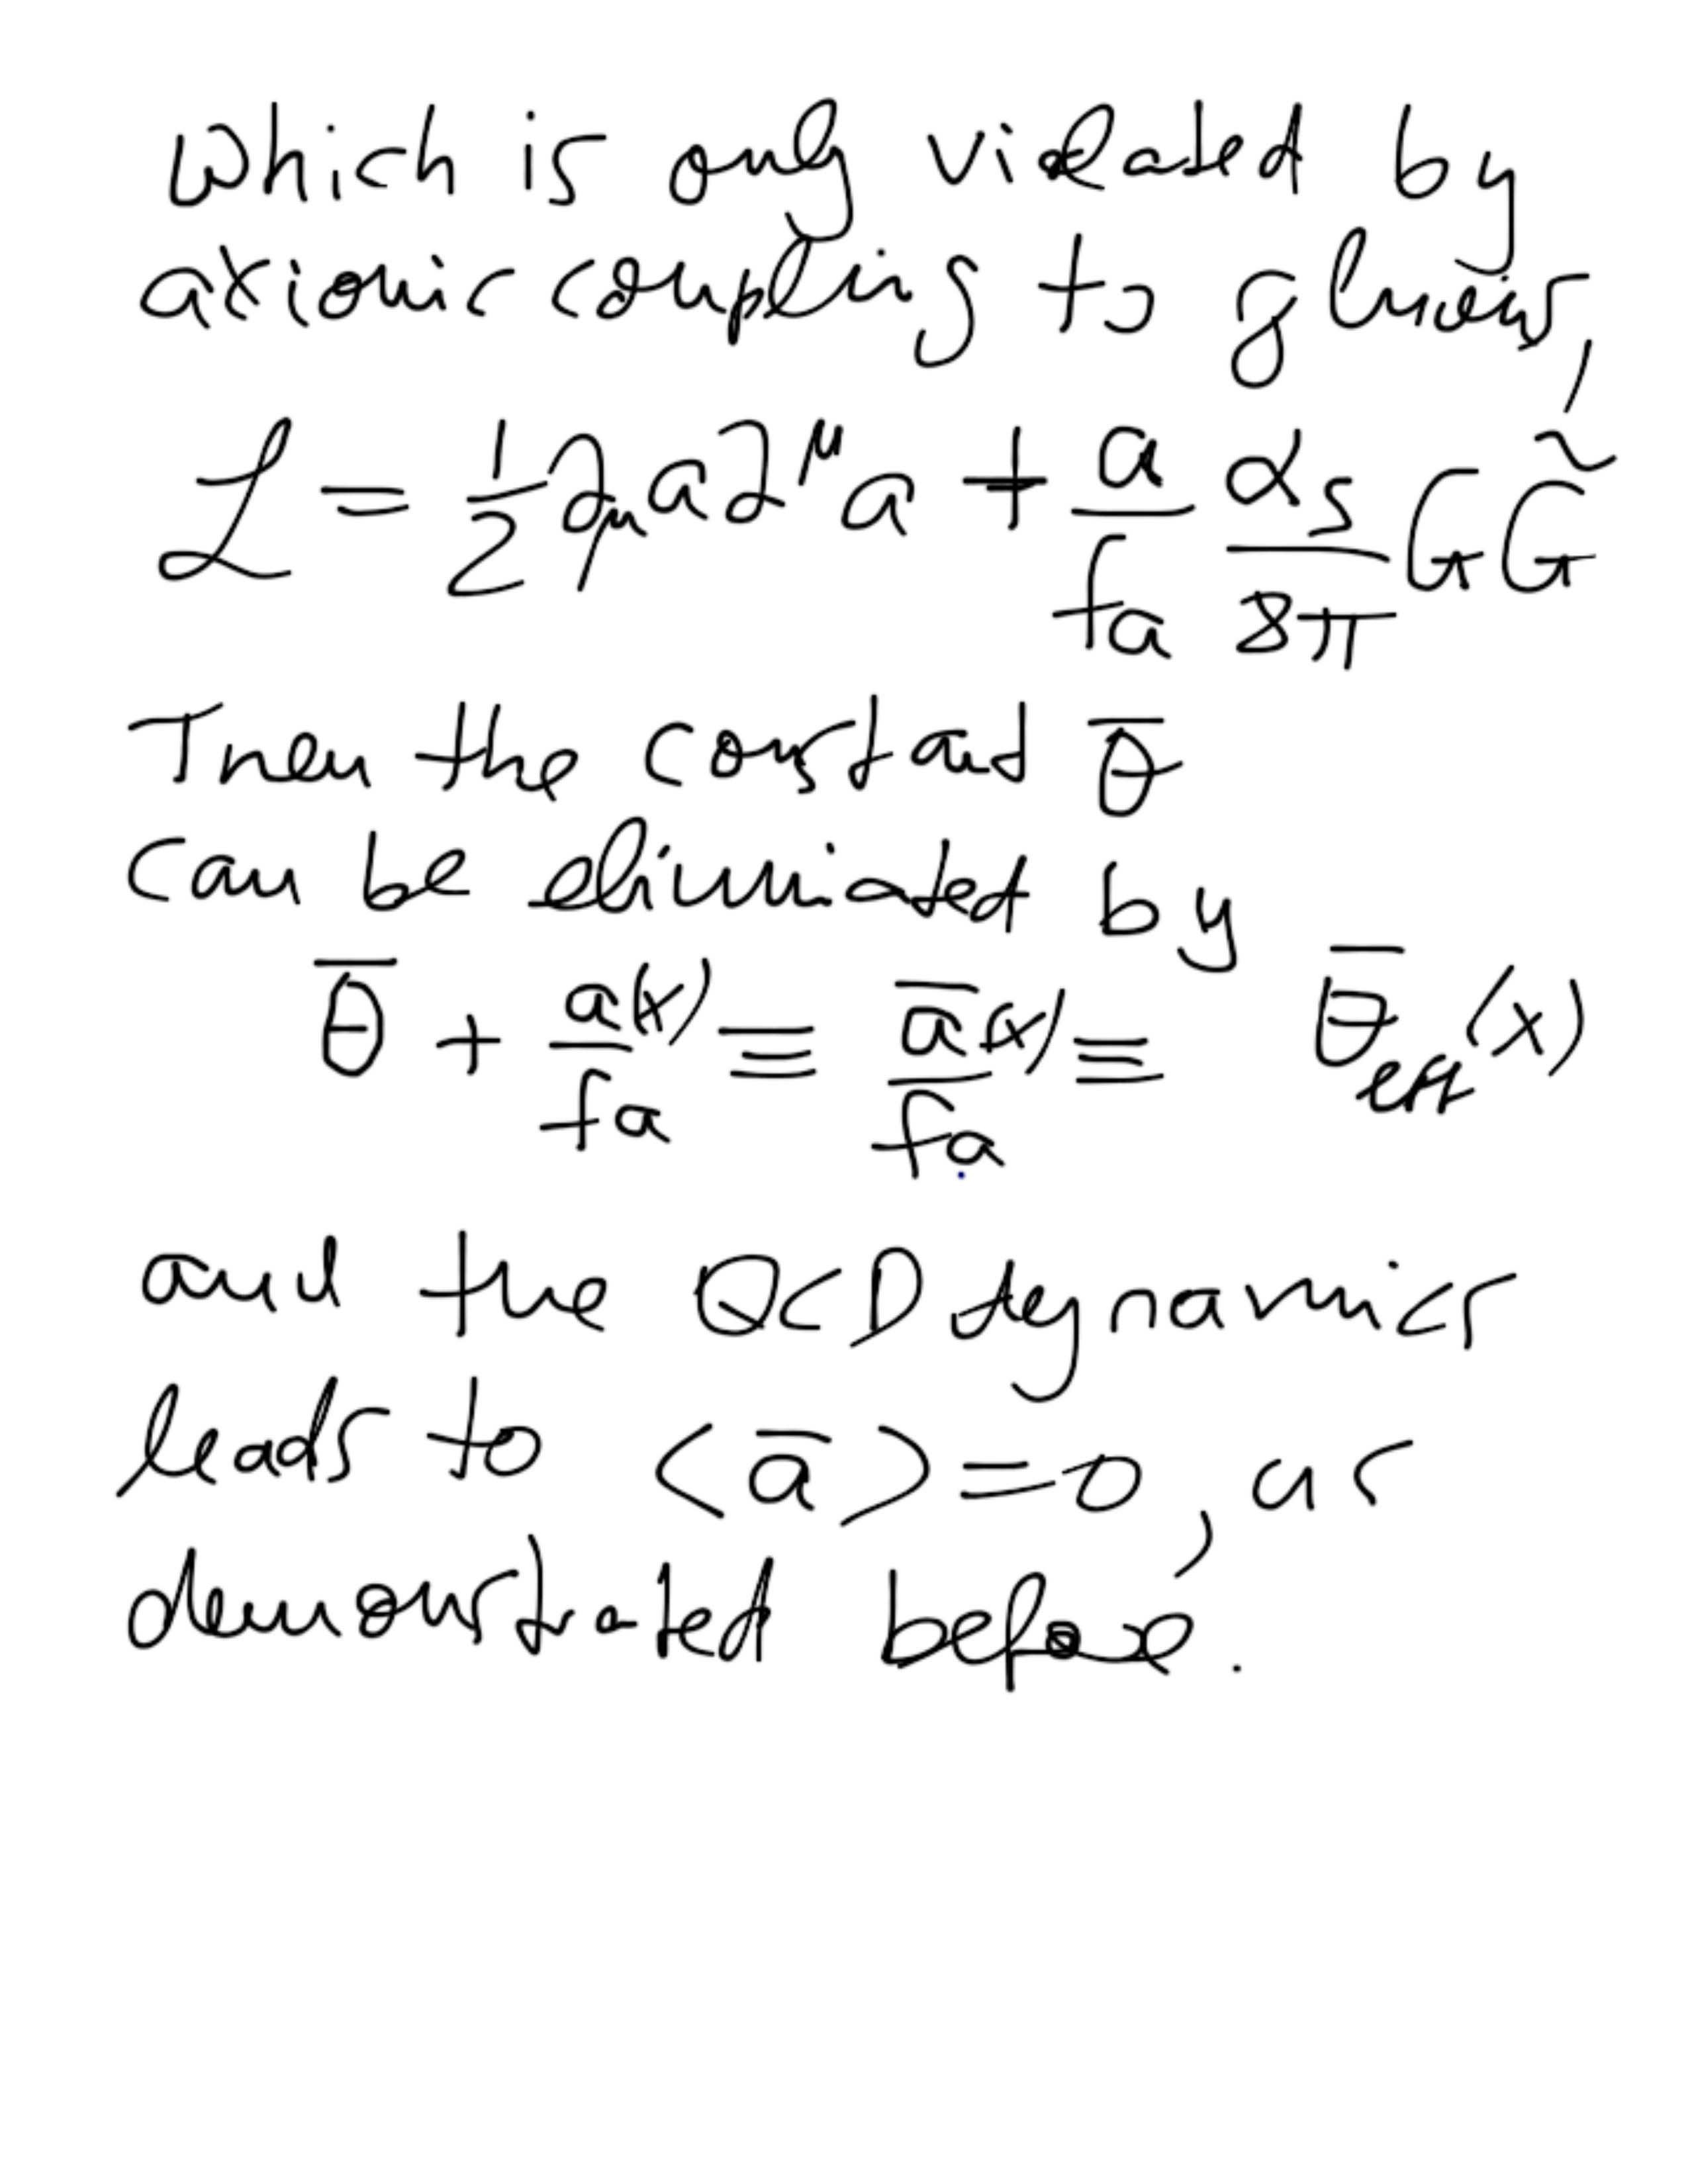 which is only violated by
axionic coupling to gluons,
ℒ = 1/2 ∂_μ a ∂^μ a + a/f_a α_s/8π G G̃
Then the constant θ̄
can be eliminated by
θ̄ + a(x)/f_a ≡ ā(x)/f_a ≡ θ̄_eff(x)
and the QCD dynamics
leads to <ā> = 0, as
demonstrated before.